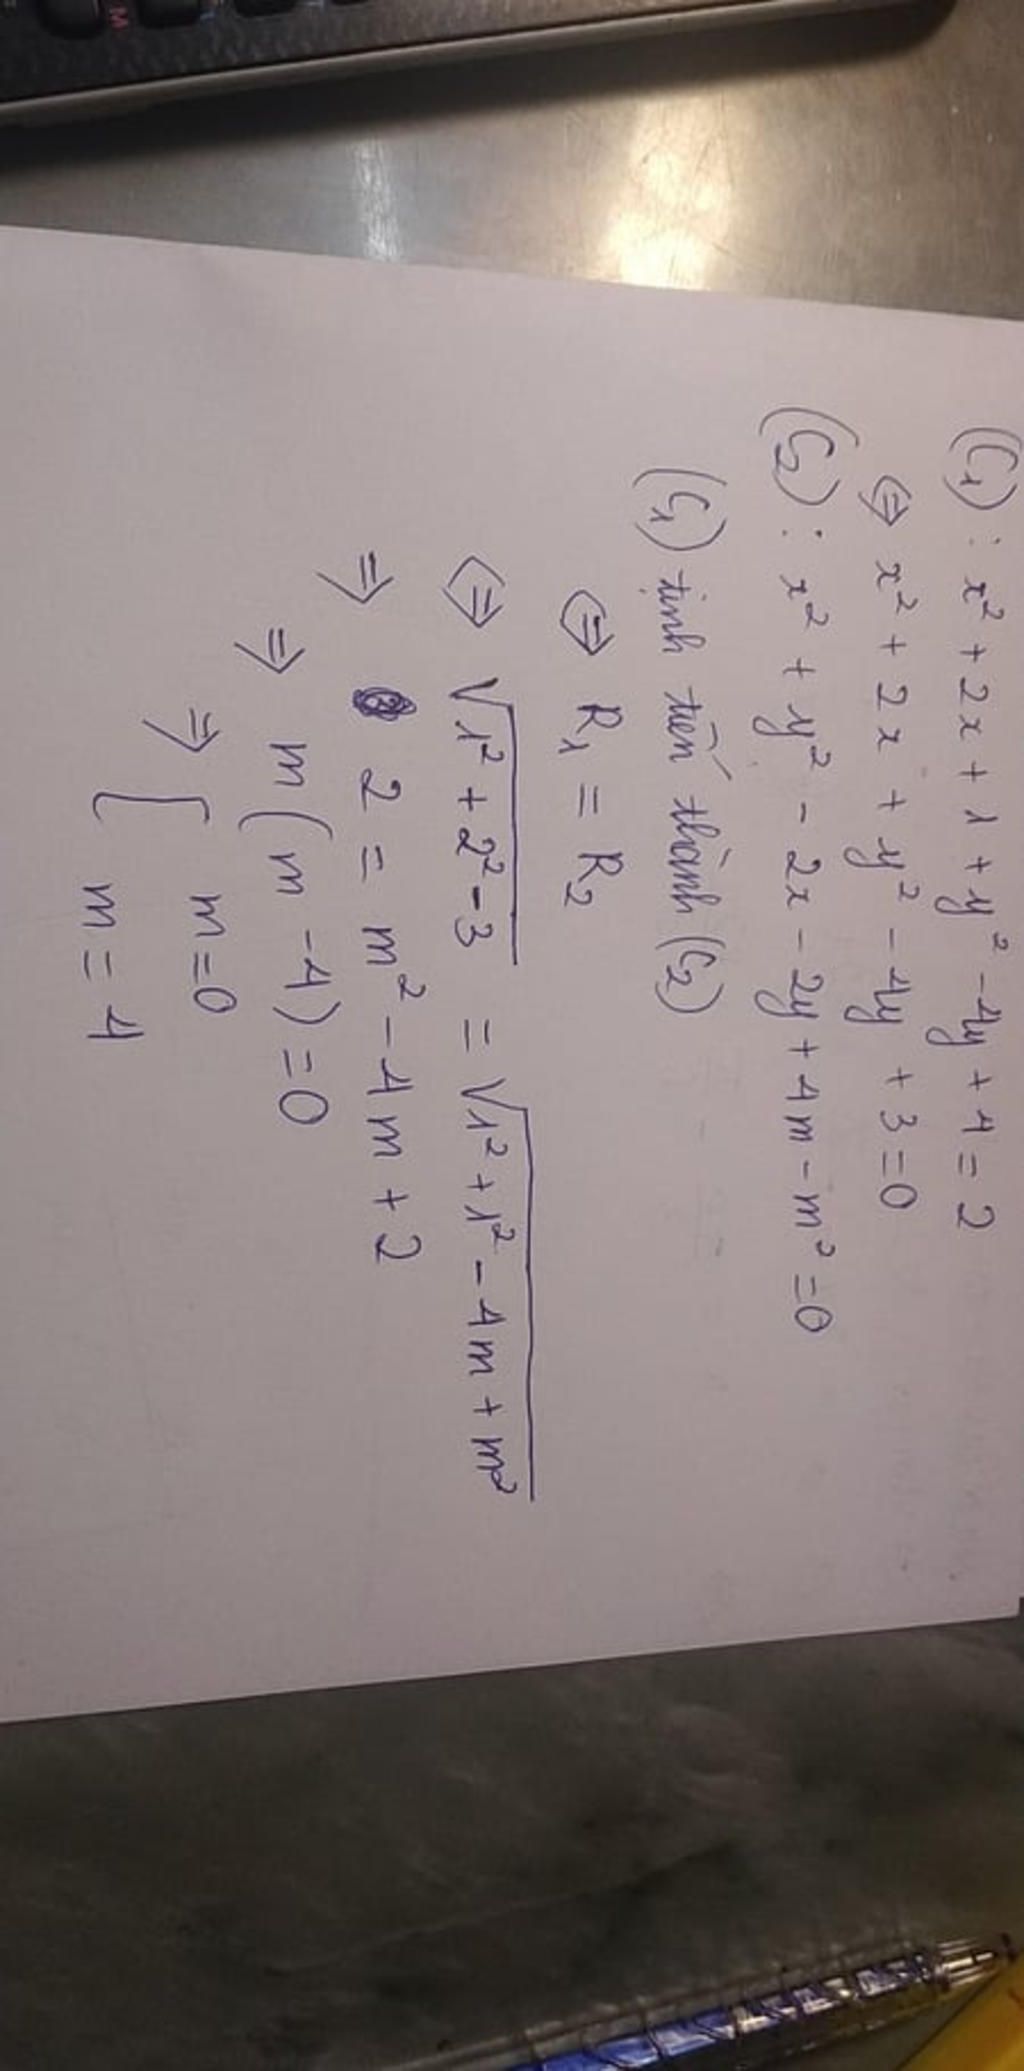 (C₁): x² + 2x + 1 + y² - 4y + 4 = 2
⇔ x² + 2x + y² - 4y + 3 = 0
(C₂): x² + y² - 2x - 2y + 4m - m² = 0
(C₁) tịnh tiến thành (C₂)
⇔ R₁ = R₂
⇔ √(1² + 2² - 3) = √(1² + 1² - 4m + m²)
⇒ 2 = m² - 4m + 2
⇒ m(m - 4) = 0
⇒ [ m = 0
m = 4